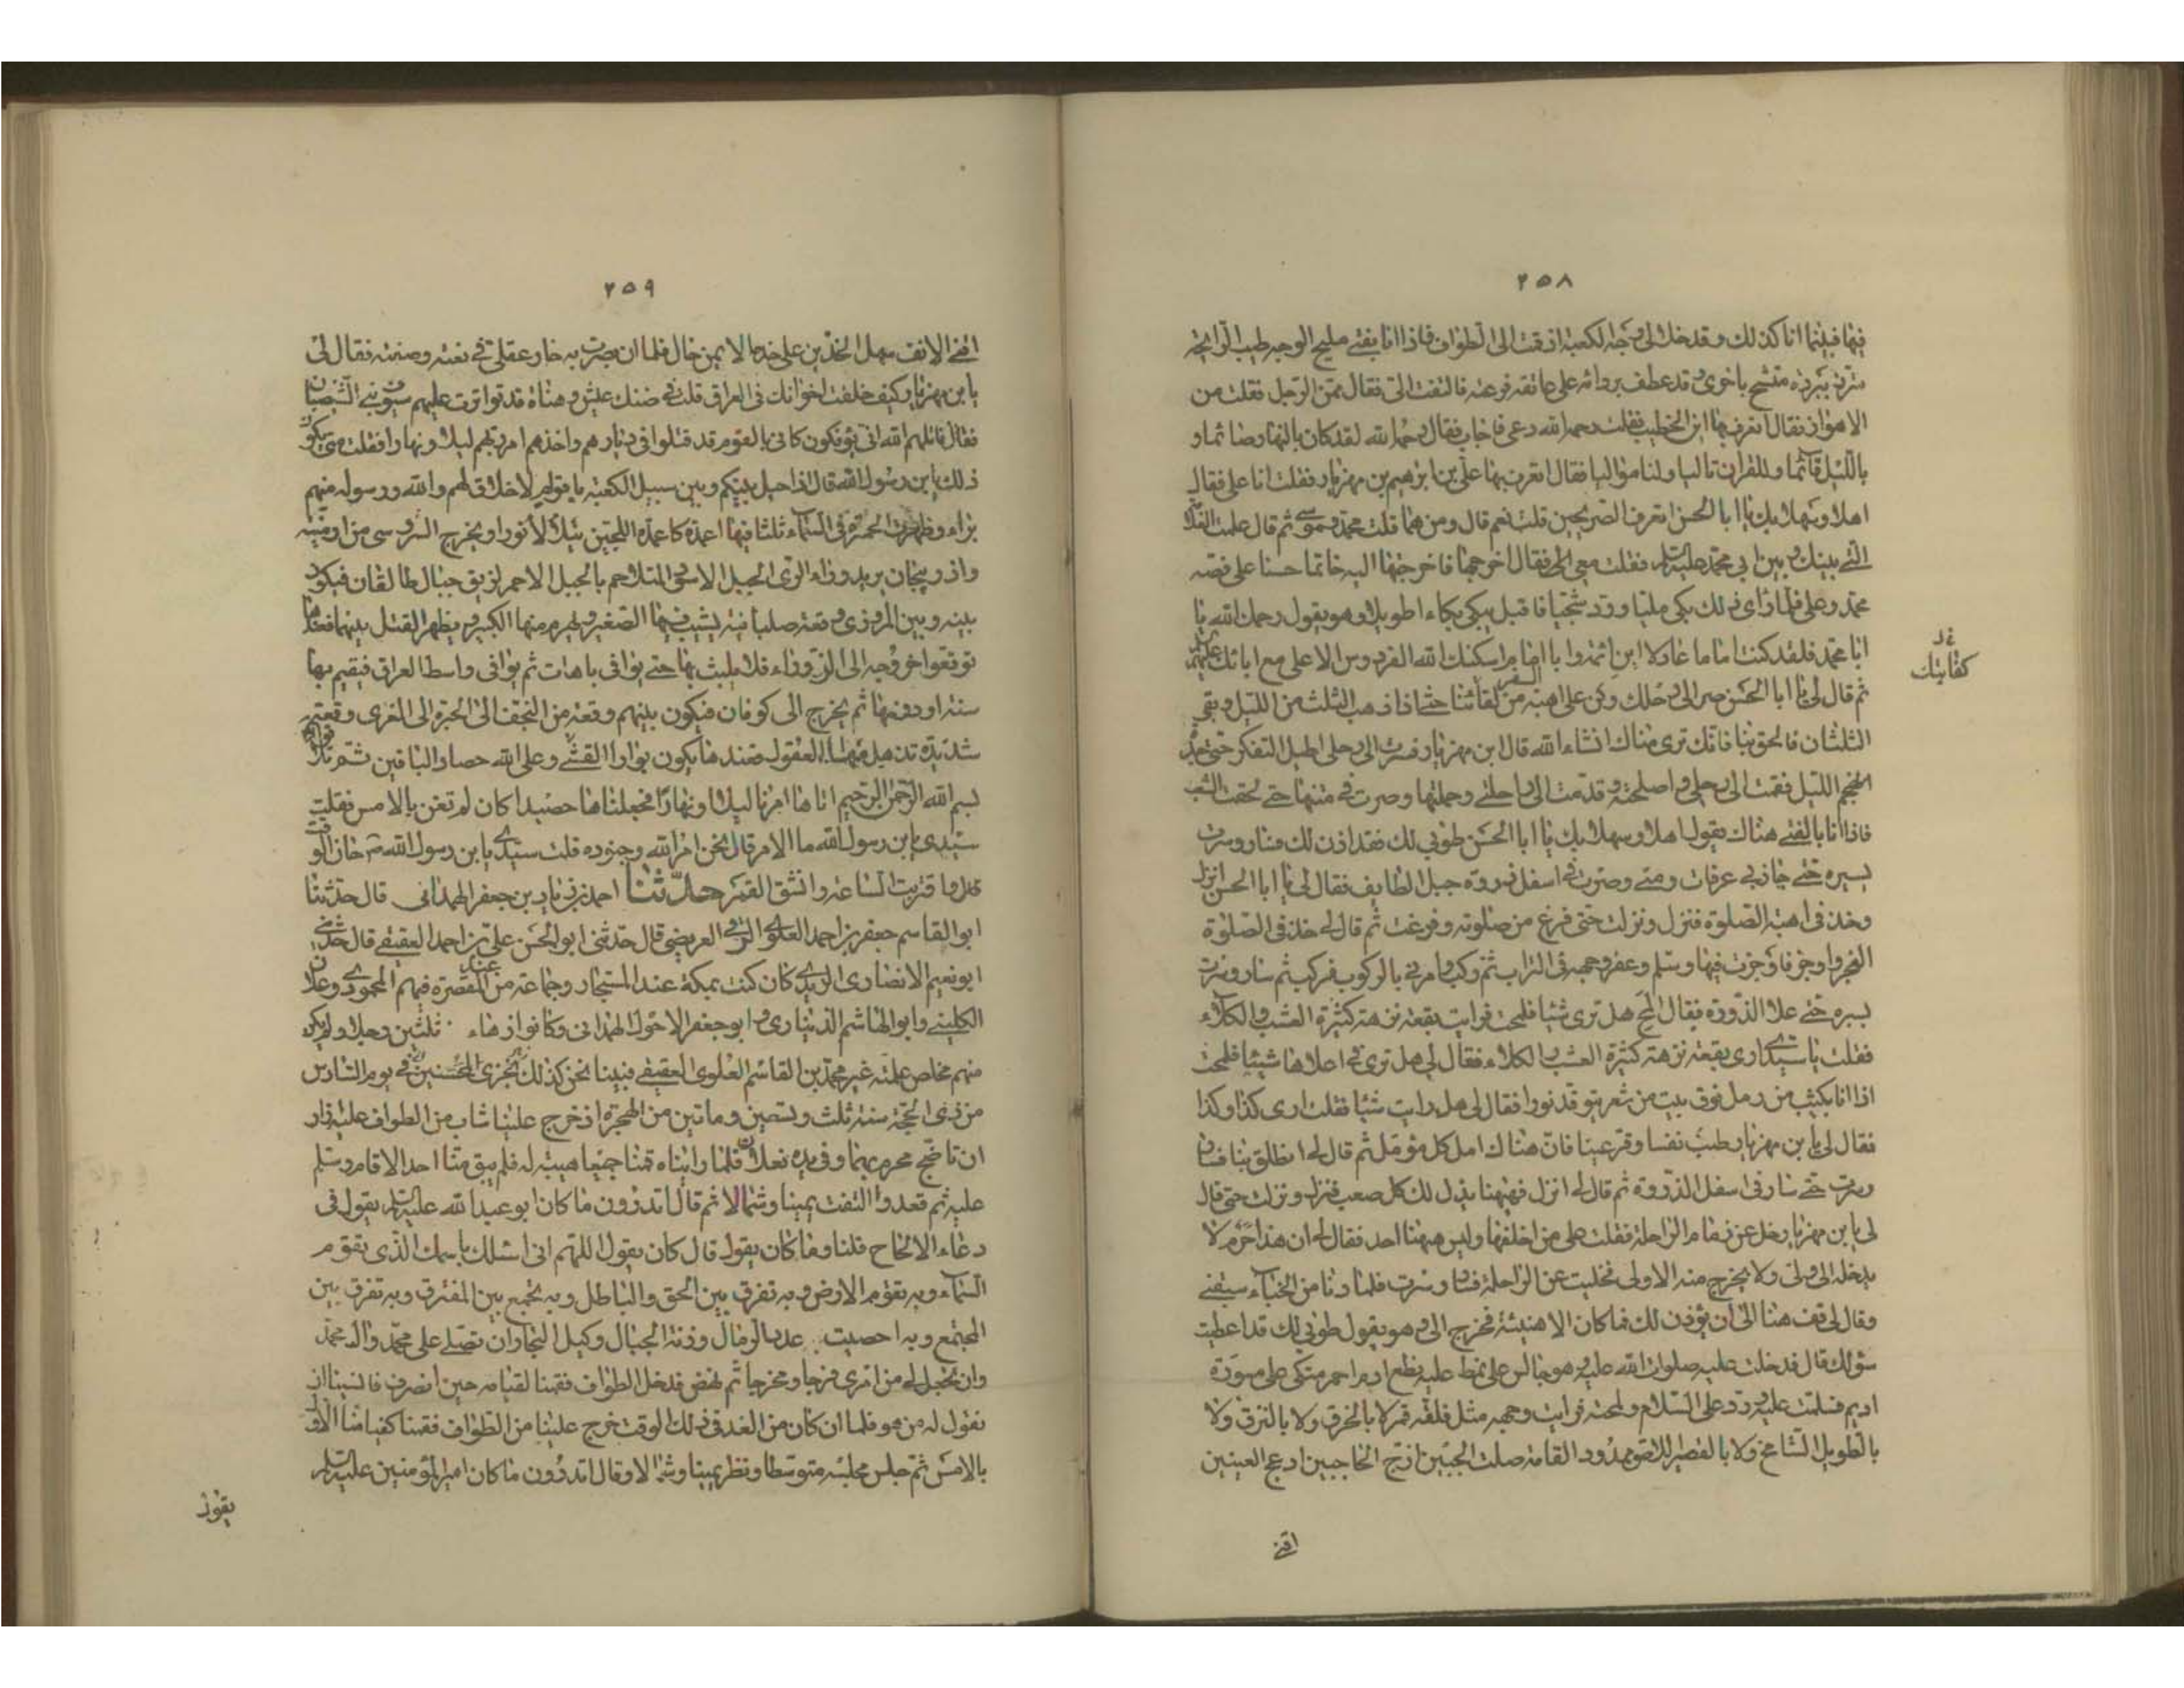 ٢٥٨
فيها فبينما انا كذلك وقد خلا لي وجه الكعبة اذ قمت الى الطواف فاذا انا بفتى مليح الوجه طيب الرائحة
متزر ببردة متشح باخرى وقد عطف بردائه على عاتقه فرعته فالتفت الى فقال ممن الرجل فقلت من
الاهواز فقال اتعرف بها ابن الخطيب فقلت رحمه الله دعى فاجاب فقال رحمه الله لقد كان بالنهار صائما و
بالليل قائما وللقران تاليا ولنا مواليا فقال اتعرف بها على بن ابرهيم بن مهزيار فقلت انا على فقال
اهلا وسهلا بك يا ابا الحسن اتعرف الصريحين قلت نعم قال ومن هما قلت محمد وموسى ثم قال ما فعلت العلامة
التى بينك وبين ابى محمد عليه السلام فقلت معى الى فقال اخرجها فاخرجتها اليه خاتما حسنا على فصه
محمد وعلى فلما راى ذلك بكى مليا ورد شجيا فاقبل يبكى بكاء طويلا وهو يقول رحمك الله يا
ابا محمد فلقد كنت اماما عادلا ابن ائمة وابا امام اسكنك الله الفردوس الاعلى مع ابائك عليهم السلام
ثم قال لى يا ابا الحسن صر الى رحلك وكن على اهبة من السفر كفايتنا حتى اذا ذهب الثلث من الليل وبقى
الثلثان فالحق بنا فانك ترى مناك انشاء الله قال ابن مهزيار فصرت الى رحلى اطيل التفكر حتى
الليل فقمت الى رحلى واصلحته وقدمت الى راحلتى وحملتها وصرت فى متنها حتى لحقت الشعب
فاذا انا بالفتى هناك يقول اهلا وسهلا بك يا ابا الحسن طوبى لك فقد اذن لك فسار وسرت
بسيره حتى جاز بى عرفات ومنى وصرت فى اسفل ذروة جبل الطايف فقال لى يا ابا الحسن انزل
وخذ فى اهبة الصلوة فنزل ونزلت حتى فرغ من صلوته وفرغت ثم قال لى خذ فى الصلوة
الفجر واوجز فاوجزت فيها وسلم وعفر وجهه فى التراب ثم ركب وامرنى بالركوب فركبت ثم سار وسرت
بسيره حتى علا الذروة فقال المح هل ترى شيئا فلمحت فرايت بقعة نزهة كثيرة العشب والكلاء
فقلت يا سيدى ارى بقعة نزهة كثيرة العشب والكلاء فقال لى هل ترى فى اعلاها شيئا فلمحت
اذا انا بكثيب من رمل فوق بيت من شعر يتوقد نورا فقال لى هل رايت شيئا فقلت ارى كذا وكذا
فقال لى يا بن مهزيار طب نفسا وقر عينا فان هناك امل كل مؤمل ثم قال لى انطلق بنا فسار
وسرت حتى سار فى اسفل الذروة ثم قال لى انزل فههنا يذل لك كل صعب فنزل ونزلت حتى قال
لى يا بن مهزيار خل عن زمام الراحلة فقلت على من اخلفها وليس ههنا احد فقال لى ان هذا حرم لا
يدخله الا ولى ولا يخرج منه الا ولى فخليت عن الراحلة فسار وسرت فلما دنا من الخباء سبقنى
وقال لى قف هنا الى ان يؤذن لك فما كان الا هنيئة فخرج الى وهو يقول طوبى لك قد اعطيت
سؤلك قال فدخلت عليه صلوات الله عليه وهو جالس على نمط عليه نطع ادم احمر متكى على مسورة
اديم فسلمت عليه ورد على السلام ولمحته فرايت وجهه مثل فلقة قمر لا بالخرق ولا بالنزق ولا
بالطويل الشامخ ولا بالقصير اللاصق ممدود القامة صلت الجبين ازج الحاجبين ادعج العينين
اقنى
كفايتك
٢٥٩
اقنى الانف سهل الخدين على خده الايمن خال فلما ان بصرت به حار عقلى فى نعته وصفته فقال لى
يا بن مهزيار كيف خلفت اخوانك فى العراق قلت فى ضنك عيش وهناة قد تواترت عليهم سيوف بنى الشيصبان
فقال قاتلهم الله انى يؤفكون كانى بالقوم قد قتلوا فى ديارهم واخذهم امر ربهم ليلا ونهارا فقلت متى يكون
ذلك يا بن رسول الله قال اذا حيل بينكم وبين سبيل الكعبة باقوام لاخلاق لهم والله ورسوله منهم
براء وظهرت الحمرة فى السماء ثلثا فيها اعمدة كاعمدة اللجين يتلألأ نورا ويخرج السروسى من ارمنية
واذربيجان يريد وراء الرى الجبل الاسود المتلاحم بالجبل الاحمر لزيق جبال طالقان فيكون
بينه وبين المروزى وقعة صلبانية يشيب فيها الصغير ويهرم منها الكبير ويظهر القتل بينهما فعندها
توقعوا خروجه الى الزوراء فلا يلبث بها حتى يوافى باهات ثم يوافى واسط العراق فيقيم بها
سنة او دونها ثم يخرج الى كوفان فيكون بينهم وقعة من النجف الى الحيرة الى الغرى وقعة
شديدة تذهل منها العقول فعندها يكون بوار الفئتين وعلى الله حصاد الباقين ثم تلا قوله
بسم الله الرحمن الرحيم اتاها امرنا ليلا ونهارا فجعلناها حصيدا كان لم تغن بالامس فقلت
سيدى يا بن رسول الله ما الامر قال نحن امر الله وجنوده قلت سيدى يا بن رسول الله حان الوقت
قال واقتربت الساعة وانشق القمر حدثنا احمد بن زياد بن جعفر الهمدانى قال حدثنا
ابو القاسم جعفر بن احمد العلوى الرقى العريضى قال حدثنى ابو الحسن على بن احمد العقيقى قال حدثنى
ابو نعيم الانصارى الزيدى كان كنت بمكة عند المستجار وجماعة من المقصرة فيهم المحمودى وعلان
الكلينى وابو الهاشم الدينارى وابو جعفر الاحول الهمدانى وكانوا زهاء ثلثين رجلا ولم يكن
منهم مخلص علمته غير محمد بن القاسم العلوى العقيقى فبينا نحن كذلك فى يوم السادس
من ذى الحجة سنة ثلث وتسعين وماتين من الهجرة اذ خرج علينا شاب من الطواف عليه ازار
ان ناضح محرم بهما وفى يده نعلان فلما رايناه قمنا جميعا هيبة له فلم يبق منا احد الا قام وسلم
عليه ثم قعد والتفت يمينا وشمالا ثم قال اتدرون ما كان ابو عبد الله عليه السلام يقول فى
دعاء الالحاح قلنا وما كان يقول قال كان يقول اللهم انى اسئلك باسمك الذى تقوم
السماء وبه تقوم الارض وبه تفرق بين الحق والباطل وبه تجمع بين المفترق وبه تفرق بين
المجتمع وبه احصيت عدد الرمال وزنة الجبال وكيل البحار ان تصلى على محمد وال محمد
وان تجعل لى من امرى فرجا ومخرجا ثم نهض فدخل الطواف فقمنا لقيامه حين انصرف فانسينا ان
نقول له من هو فلما ان كان من الغد فى ذلك الوقت خرج علينا من الطواف فقمنا كقيامنا الاول
بالامس ثم جلس مجلسه متوسطا ونظر يمينا وشمالا وقال اتدرون ما كان امير المؤمنين عليه السلام
يقول